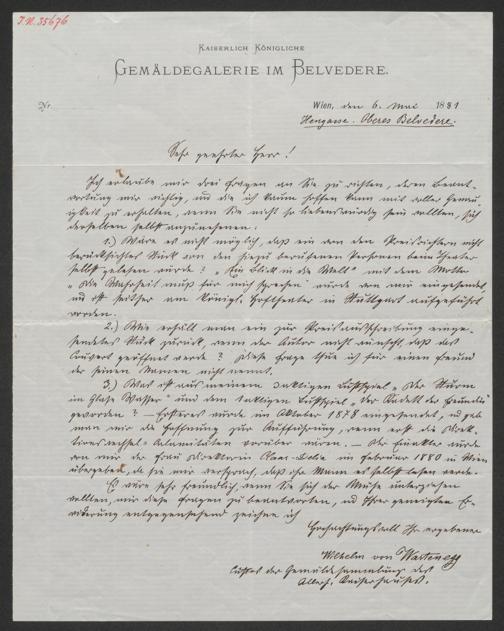 J.N. 35676
KAISERLICH KÖNIGLICHE
GEMÄLDEGALERIE IM BELVEDERE.
Nr.
Wien, den 6. Mai 1881
Heugasse. Oberes Belvedere.
Sehr geehrter Herr!
Ich erlaube mir drei Fragen an Sie zu richten, deren Beant-
wortung mir wichtig, und die ich kaum hoffen kann mit voller Genau-
igkeit zu erhalten, wenn Sie nicht so liebenswürdig sein wollten, sich
derselben selbst anzunehmen.
1.) Wäre es nicht möglich, daß ein von den Preisrichtern nicht
berücksichtes Stück von den hiezu berufenen Personen beim Theater
selbst gelesen würde? "Ein Blick in die Welt" mit dem Motto
"Die Wahrheit muß für mich sprechen" wurde von mir eingesendet,
und ist seither am königl. Hoftheater in Stuttgart aufgeführt
worden.
2.) Wie erhält man ein zur Preisausschreibung einge-
sendetes Stück zurück, wenn der Autor nicht wünscht, daß das
Couvert geöffnet werde? Diese Frage thue ich für einen Freund
der seinen Namen nicht nennt.
3.) Was ist aus meinem Lustspiel "Der Sturm
im Glase Wasser" und dem 1aktigen Lustspiel "Der Kadett der Freundin"
geworden? — Ersteres wurde im Oktober 1878 eingesendet, und gab
man mir die Hoffnung zur Aufführung, wenn erst die Direk-
tionswechsel-Calamitäten vorüber wären. — Der Einakter wurde
von mir der Frau Direktorin im Februar 1880 in Wien
übergeben, da sie mir versprach, daß ihr Mann es selbst lesen werde.
Es wäre sehr freundlich, wenn Sie sich der Mühe unterziehen
wollten, mir diese Fragen zu beantworten, und Ihrer geneigten Er-
widerung entgegensehend zeichne ich
Hochachtungsvoll Ihr ergebener
Wilhelm von Wartenegg
Custos der Gemäldesammlung des
Allerh. Kaiserhauses.